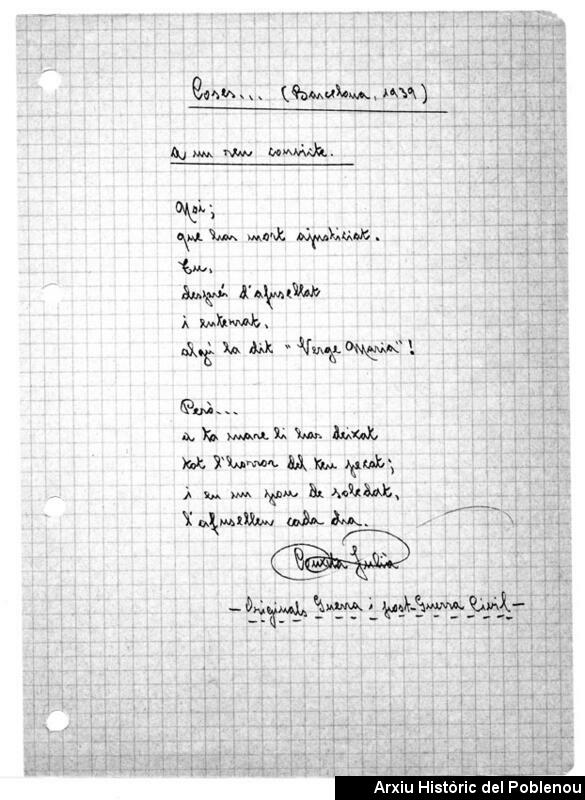 Coses... (Barcelona, 1939)
a un reu convicte.
Noi;
que has mort ajusticiat.
Tu,
després d'afusellat
i enterrat,
algú ha dit "Verge Maria"!
Però...
a ta mare li has deixat
tot l'horror del teu pecat;
i en un pou de soledat,
l'afusellen cada dia.
Conxita Julià
- Originals Guerra i post-Guerra Civil -
Arxiu Històric del Poblenou